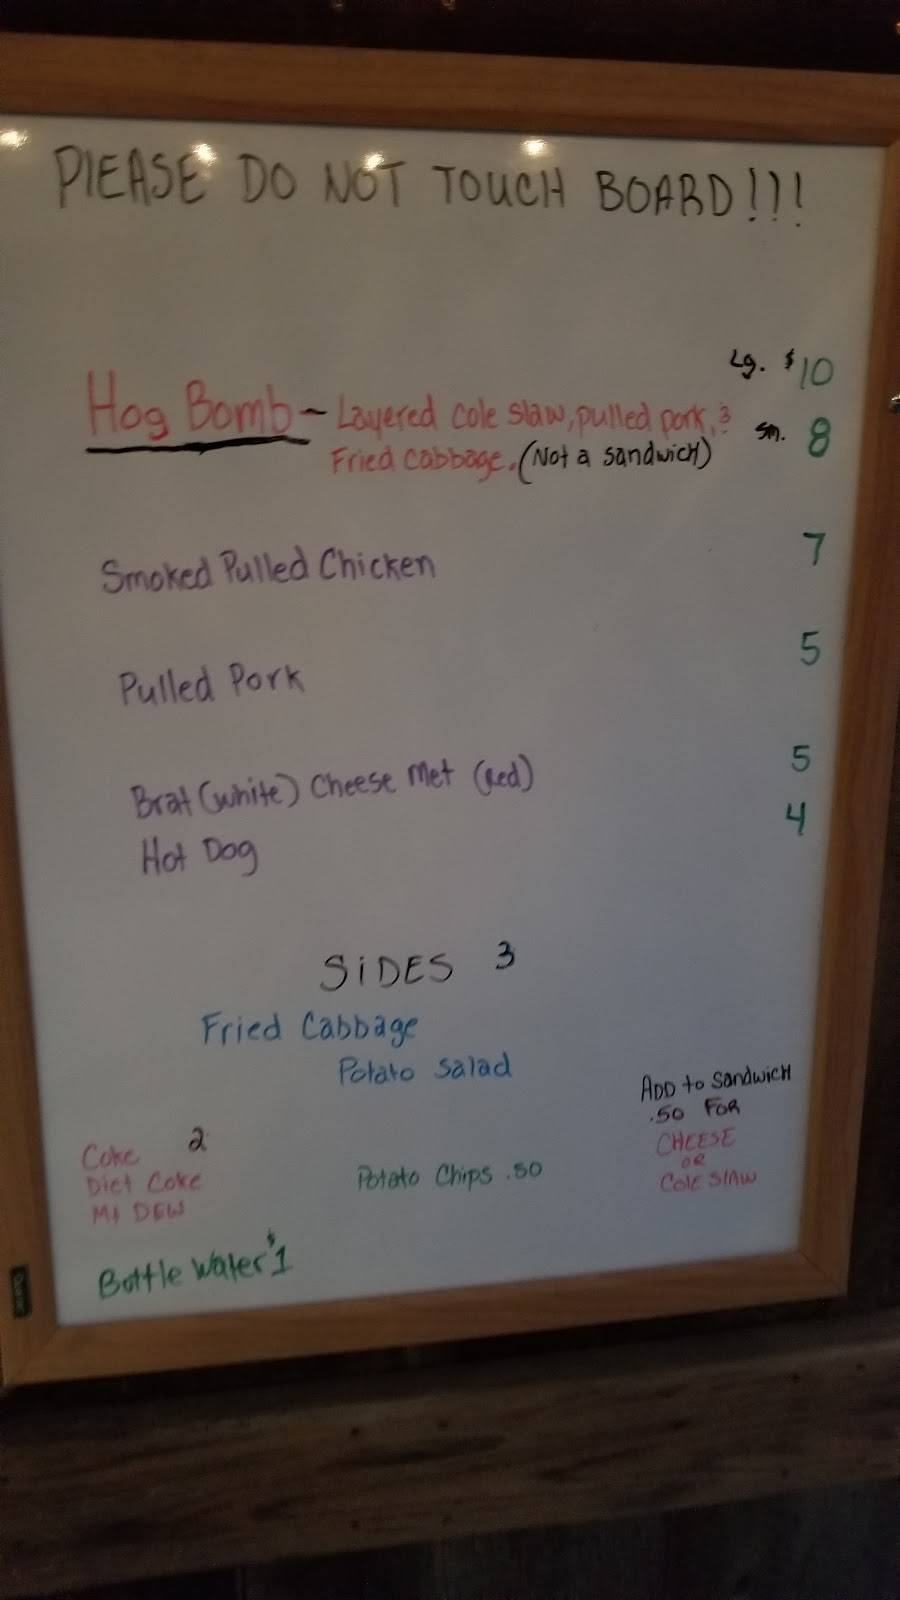 PLEASE DO NOT TOUCH BOARD!!!
Lg. $10
Hog Bomb - Layered Cole Slaw, pulled pork, & sm. 8
Fried Cabbage. (Not a sandwich)
Smoked Pulled Chicken 7
Pulled Pork 5
Brat (white) Cheese Met (Red) 5
Hot Dog 4
SIDES 3
Fried Cabbage
Potato Salad
ADD to Sandwich
.50 FOR
CHEESE
OR
COLE SLAW
Coke 2
Diet Coke
Mt DEW
Potato Chips .50
Bottle Water $1